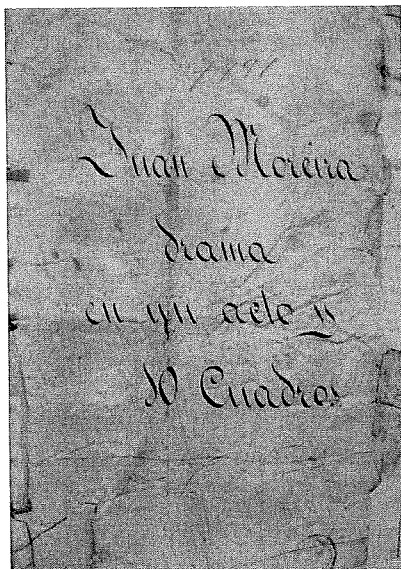 Juan Moreira
drama
en un acto y
10 Cuadros